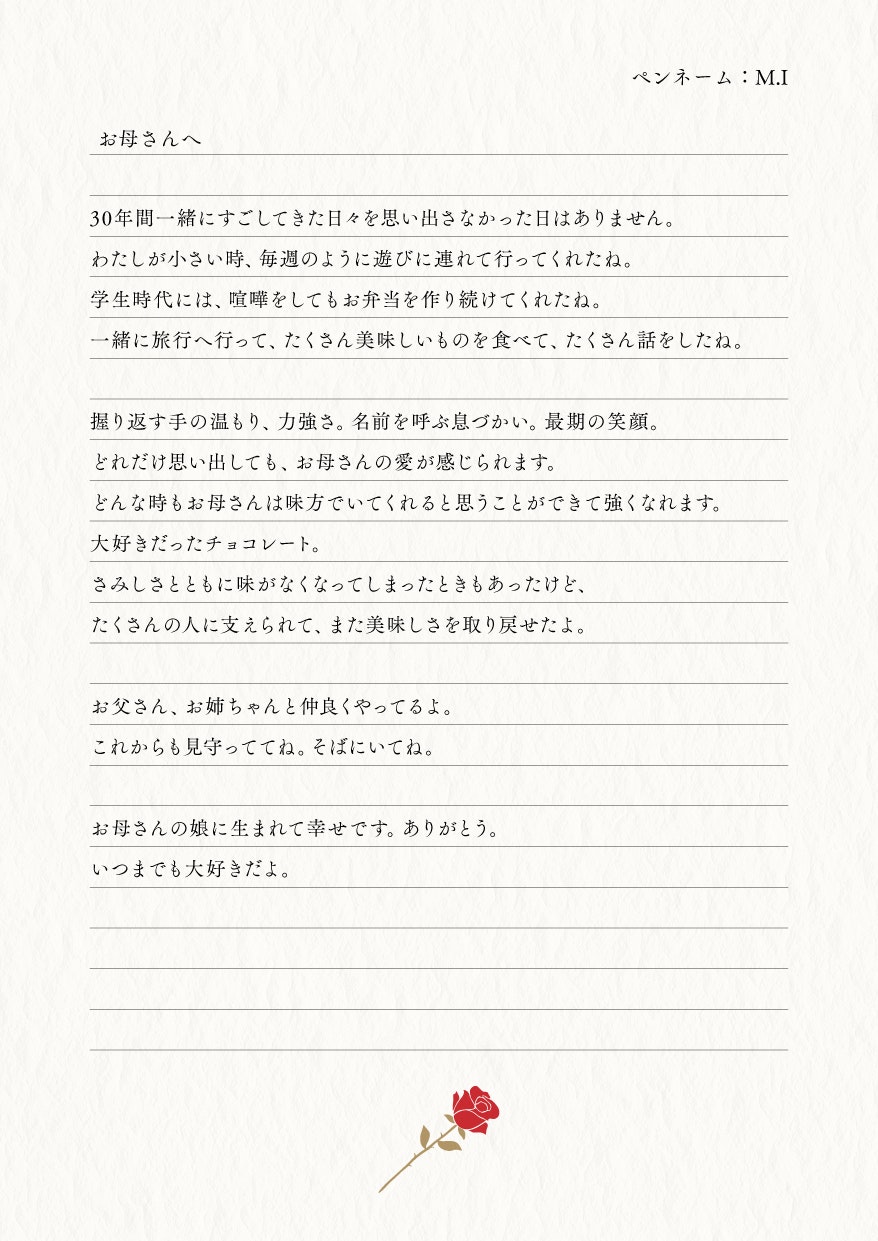 ペンネーム：M.I
お母さんへ
30年間一緒にすごしてきた日々を思い出さなかった日はありません。
わたしが小さい時、毎週のように遊びに連れて行ってくれたね。
学生時代には、喧嘩をしてもお弁当を作り続けてくれたね。
一緒に旅行へ行って、たくさん美味しいものを食べて、たくさん話をしたね。
握り返す手の温もり、力強さ。名前を呼ぶ息づかい。最期の笑顔。
どれだけ思い出しても、お母さんの愛が感じられます。
どんな時もお母さんは味方でいてくれると思うことができて強くなれます。
大好きだったチョコレート。
さみしさとともに味がなくなってしまったときもあったけど、
たくさんの人に支えられて、また美味しさを取り戻せたよ。
お父さん、お姉ちゃんと仲良くやってるよ。
これからも見守っててね。そばにいてね。
お母さんの娘に生まれて幸せです。ありがとう。
いつまでも大好きだよ。